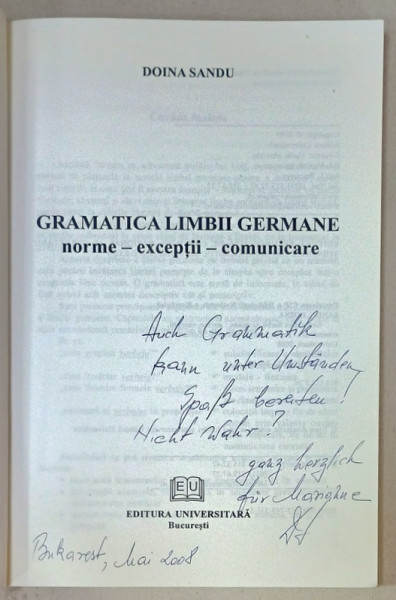 DOINA SANDU
GRAMATICA LIMBII GERMANE
norme – excepții – comunicare
Auch Grammatik
kann unter Umständen
Spaß bereiten!
Nicht wahr?
ganz herzlich
für Marianne
EU
EDITURA UNIVERSITARĂ
București
Bukarest, Mai 2008